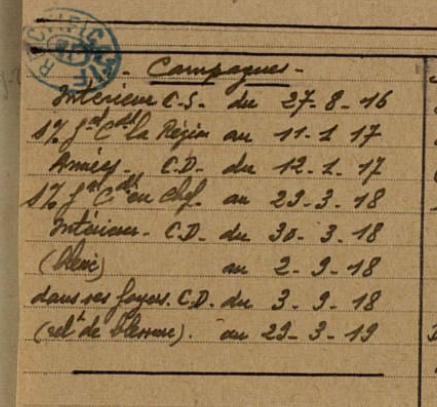 Campagnes -
Intérieur C.S. du 27-8-16
S/. gal Ct la Région au 11-1 17
Armées - C.D. du 12.1.17
S/. gal Ct en chef. au 29-3-18
Intérieur - C.D. du 30-3-18
(blessé) au 2-9-18
dans ses foyers. C.D. du 3-9-18
(relt de blessure). au 29-3-19